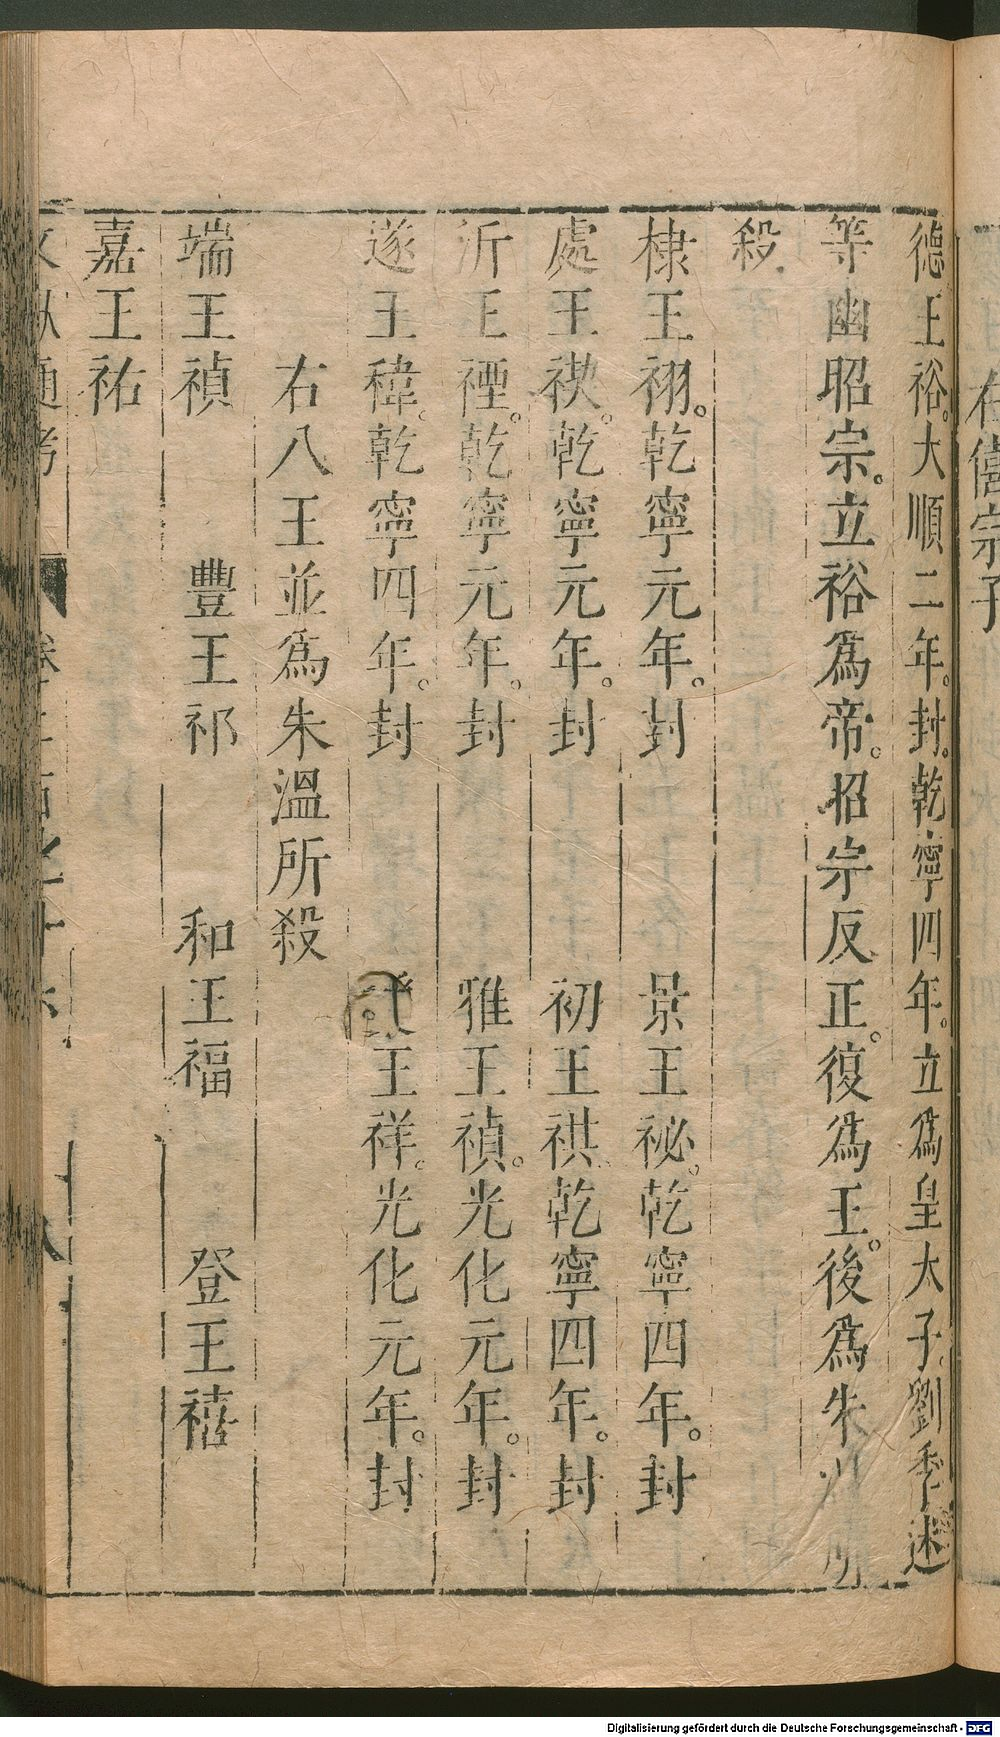 右僖宗子
德王裕。大順二年。封。乾寧四年。立爲皇太子。劉季述
等幽昭宗。立裕爲帝。招宗反正。復爲王。後爲朱所
殺
棣王祤。乾寧元年。封 景王祕。乾寧四年。封
處王禊。乾寧元年。封 初王祺乾寧四年。封
沂王禋。乾寧元年。封 雅王禎。光化元年。封
遂王禕。乾寧四年。封 王祥。光化元年。封
右八王並爲朱溫所殺
端王禎 豐王祁 和王福 登王禧
嘉王祐
通考 卷二百七十六 八
Digitalisierung gefördert durch die Deutsche Forschungsgemeinschaft - DFG